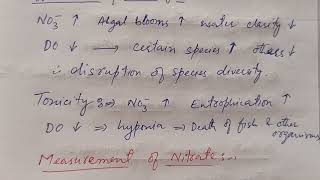 NO₃⁻ ↑ Algal blooms ↑ water clarity ↓
DO ↓ → certain species ↑ others ↓
∴ disruption of species diversity.
Toxicity :⇒ NO₃⁻ ↑ Eutrophication ↑
DO ↓ ⇒ hypoxia ⇒ Death of fish & other
organisms
Measurement of Nitrate:-